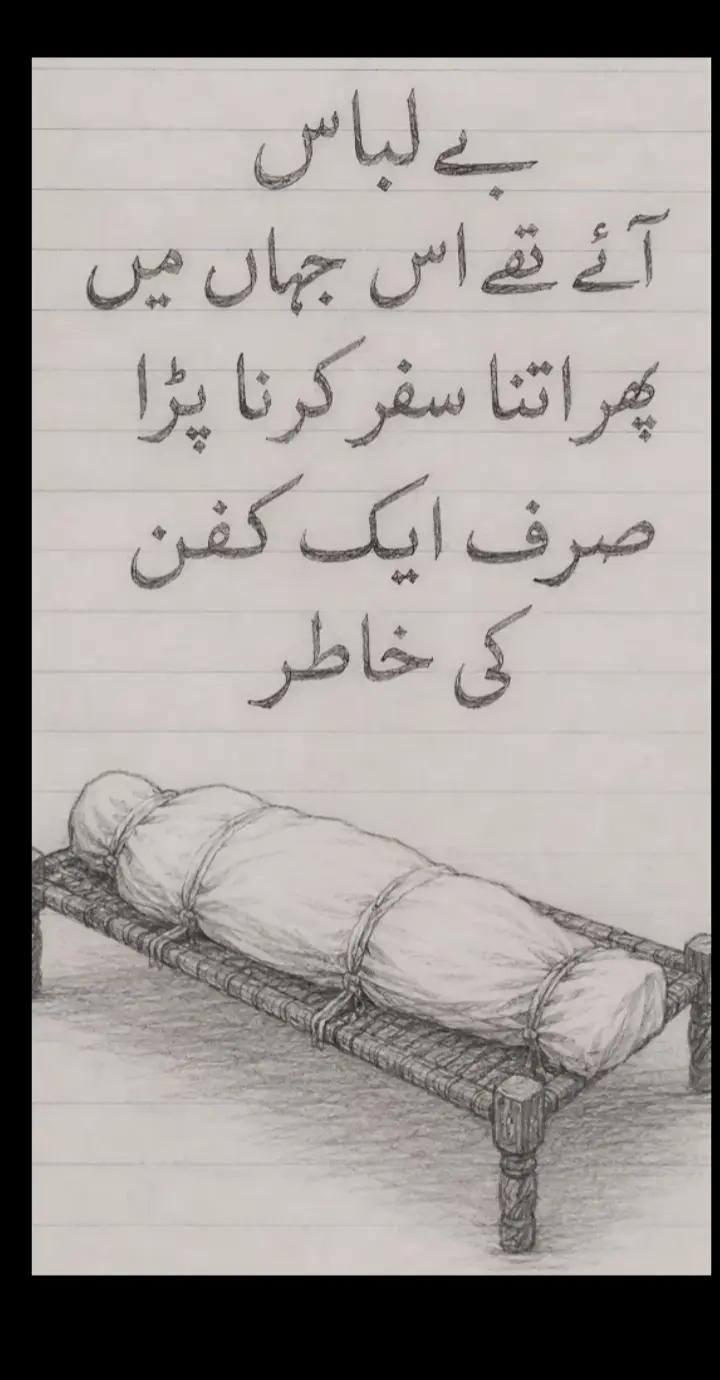 بے لباس
آئے تھے اس جہاں میں
پھر اتنا سفر کرنا پڑا
صرف ایک کفن
کی خاطر